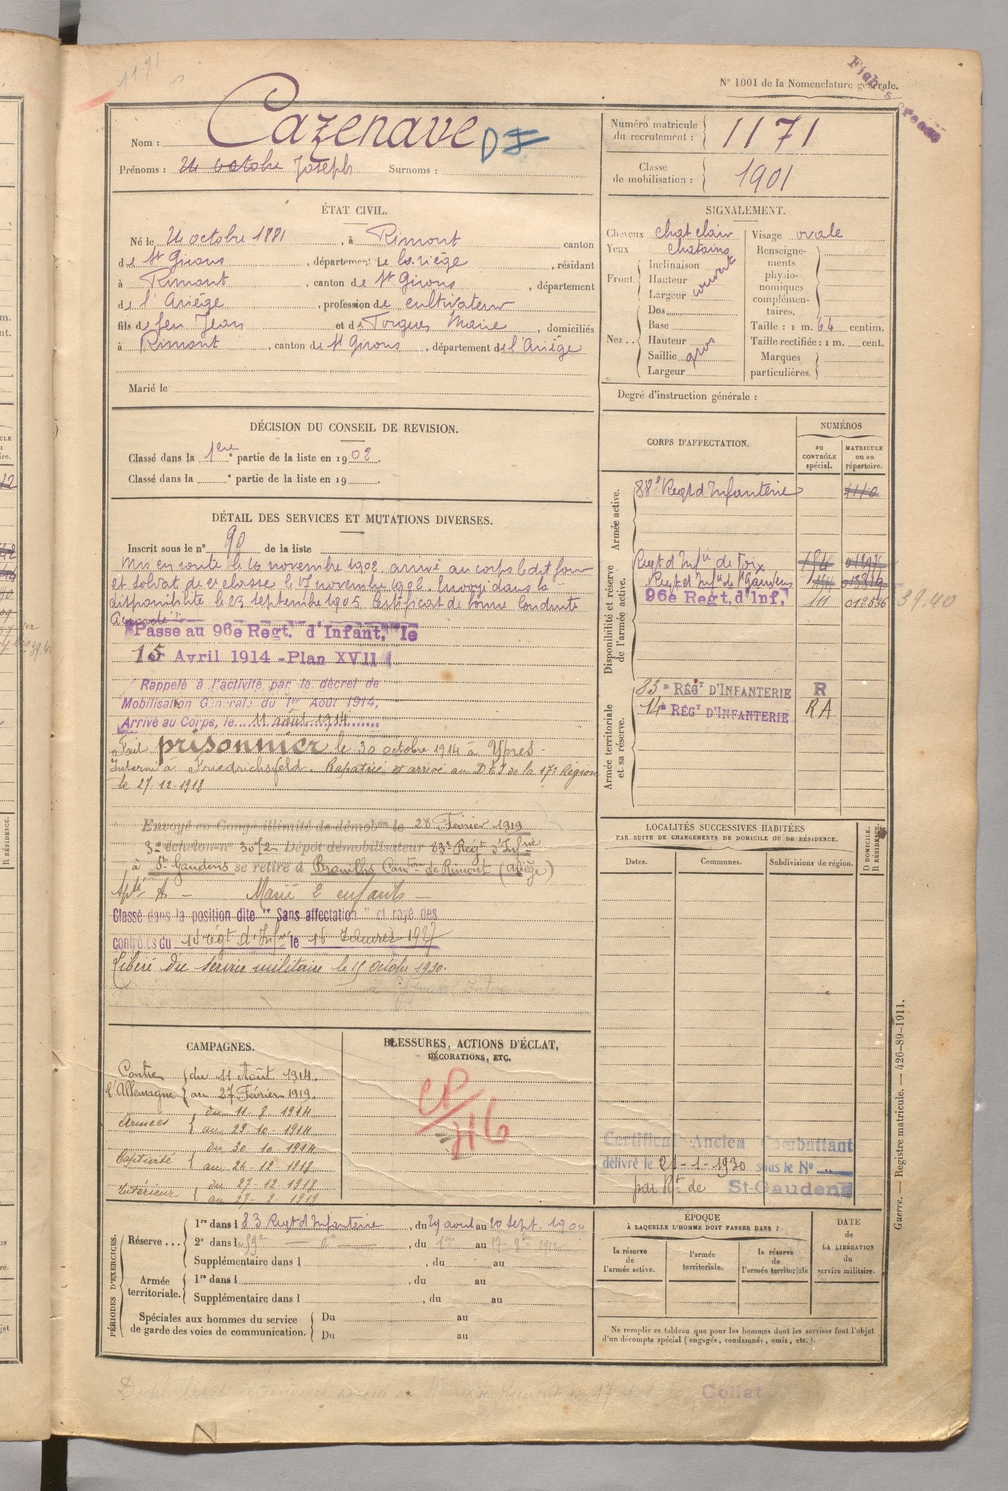 1171
N° 1001 de la Nomenclature générale.
Nom : Cazenave DF
Prénoms : 24 octobre Joseph Surnoms :
Numéro matricule du recrutement : 1171
Classe de mobilisation : 1901
ÉTAT CIVIL.
Né le 24 octobre 1881, à Rimont canton
de St Girons, département de l'ariège, résidant
à Rimont, canton de St Girons, département
de l'Ariège, profession de cultivateur
fils de feu Jean et de Torgues Marie, domiciliés
à Rimont, canton de St Girons, département de l'Ariège
Marié le
SIGNALEMENT.
Cheveux chat clair
Yeux chatains
Front Inclinaison
Hauteur couvert
Largeur
Nez Dos
Base
Hauteur
Saillie gros
Largeur
Visage ovale
Renseignements physionomiques complémentaires.
Taille : 1 m. 64 centim.
Taille rectifiée : 1 m. cent.
Marques particulières.
Degré d'instruction générale :
DÉCISION DU CONSEIL DE REVISION.
Classé dans la 1ère partie de la liste en 1902.
Classé dans la partie de la liste en 19
CORPS D'AFFECTATION.
NUMÉROS
au CONTRÔLE spécial.
MATRICULE ou au répertoire.
Armée active.
88e Regt d'Infanterie
Disponibilité et réserve de l'armée active.
Regt d'Infie de Foix
Regt d'Infie de St Gaudens
96e Regt. d'Inf. 39.40
Armée territoriale et sa réserve.
83e RÉGT D'INFANTERIE R
14e RÉGT D'INFANTERIE RA
DÉTAIL DES SERVICES ET MUTATIONS DIVERSES.
Inscrit sous le n° 90 de la liste
Mis en route le 16 novembre 1902. arrivé au corps le dit jour
et soldat de 2e classe le 17 novembre 1902. Envoyé dans la
disponibilité le 23 septembre 1905 Certificat de bonne Conduite
Accordé
Passé au 96e Regt. d'Infant. le
15 Avril 1914 - Plan XVII
Rappelé à l'activité par le décret de
Mobilisation Générale du 1er Août 1914,
Arrivé au Corps, le 11 août 1914
Fait prisonnier le 30 octobre 1914 à Ypres.
Interné à Friedrichsfeld. Rapatrié et arrivé au D.E.I de la 17e Région
le 27-12-1918
Envoyé en Congé illimité de démobon le 28 Février 1919
3e échelon n° 3072 Dépôt démobilisateur 83e Regt d'Infrie
à St Gaudens se retire à Canton de Rimont (Ariège)
Marié 2 enfants
Classé dans la position dite "Sans affectation" et rayé des
contrôles du 14 regt d'Infrie le 15 Janvier 1927
Libéré du service militaire le 15 Octobre 1930.
LOCALITÉS SUCCESSIVES HABITÉES
PAR SUITE DE CHANGEMENTS DE DOMICILE OU DE RÉSIDENCE.
Dates. Communes. Subdivisions de région. D DOMICILE. R RÉSIDENCE.
CAMPAGNES.
Contre l'Allemagne du 11 Août 1914.
au 27 Février 1919.
Armées du 11-8-1914
au 29-10-1914
Captivité du 30-10-1914
au 26-12-1918
Intérieur du 27-12-1918
au 27-2-1919
BLESSURES, ACTIONS D'ÉCLAT,
DÉCORATIONS, ETC.
Certificat Ancien Combattant
délivré le 21-1-1930 sous le N°
par Rt de St-Gaudens
PÉRIODES D'EXERCICES.
Réserve 1re dans l 83 Regt d'Infanterie, du 29 aout au 20 sept.
2e dans l, du au
Supplémentaire dans l, du au
Armée territoriale. 1re dans l, du au
Supplémentaire dans l, du au
Spéciales aux hommes du service de garde des voies de communication. Du au
Du au
ÉPOQUE
À LAQUELLE L'HOMME DOIT PASSER DANS :
la réserve de l'armée active.
l'armée territoriale.
la réserve de l'armée territoriale
DATE DE LA LIBÉRATION du service militaire.
Ne remplir ce tableau que pour les hommes dont les services font l'objet
d'un décompte spécial (engagés, condamnés, omis, etc.).
Guerre. — Registre matricule. — 426-89-1911.